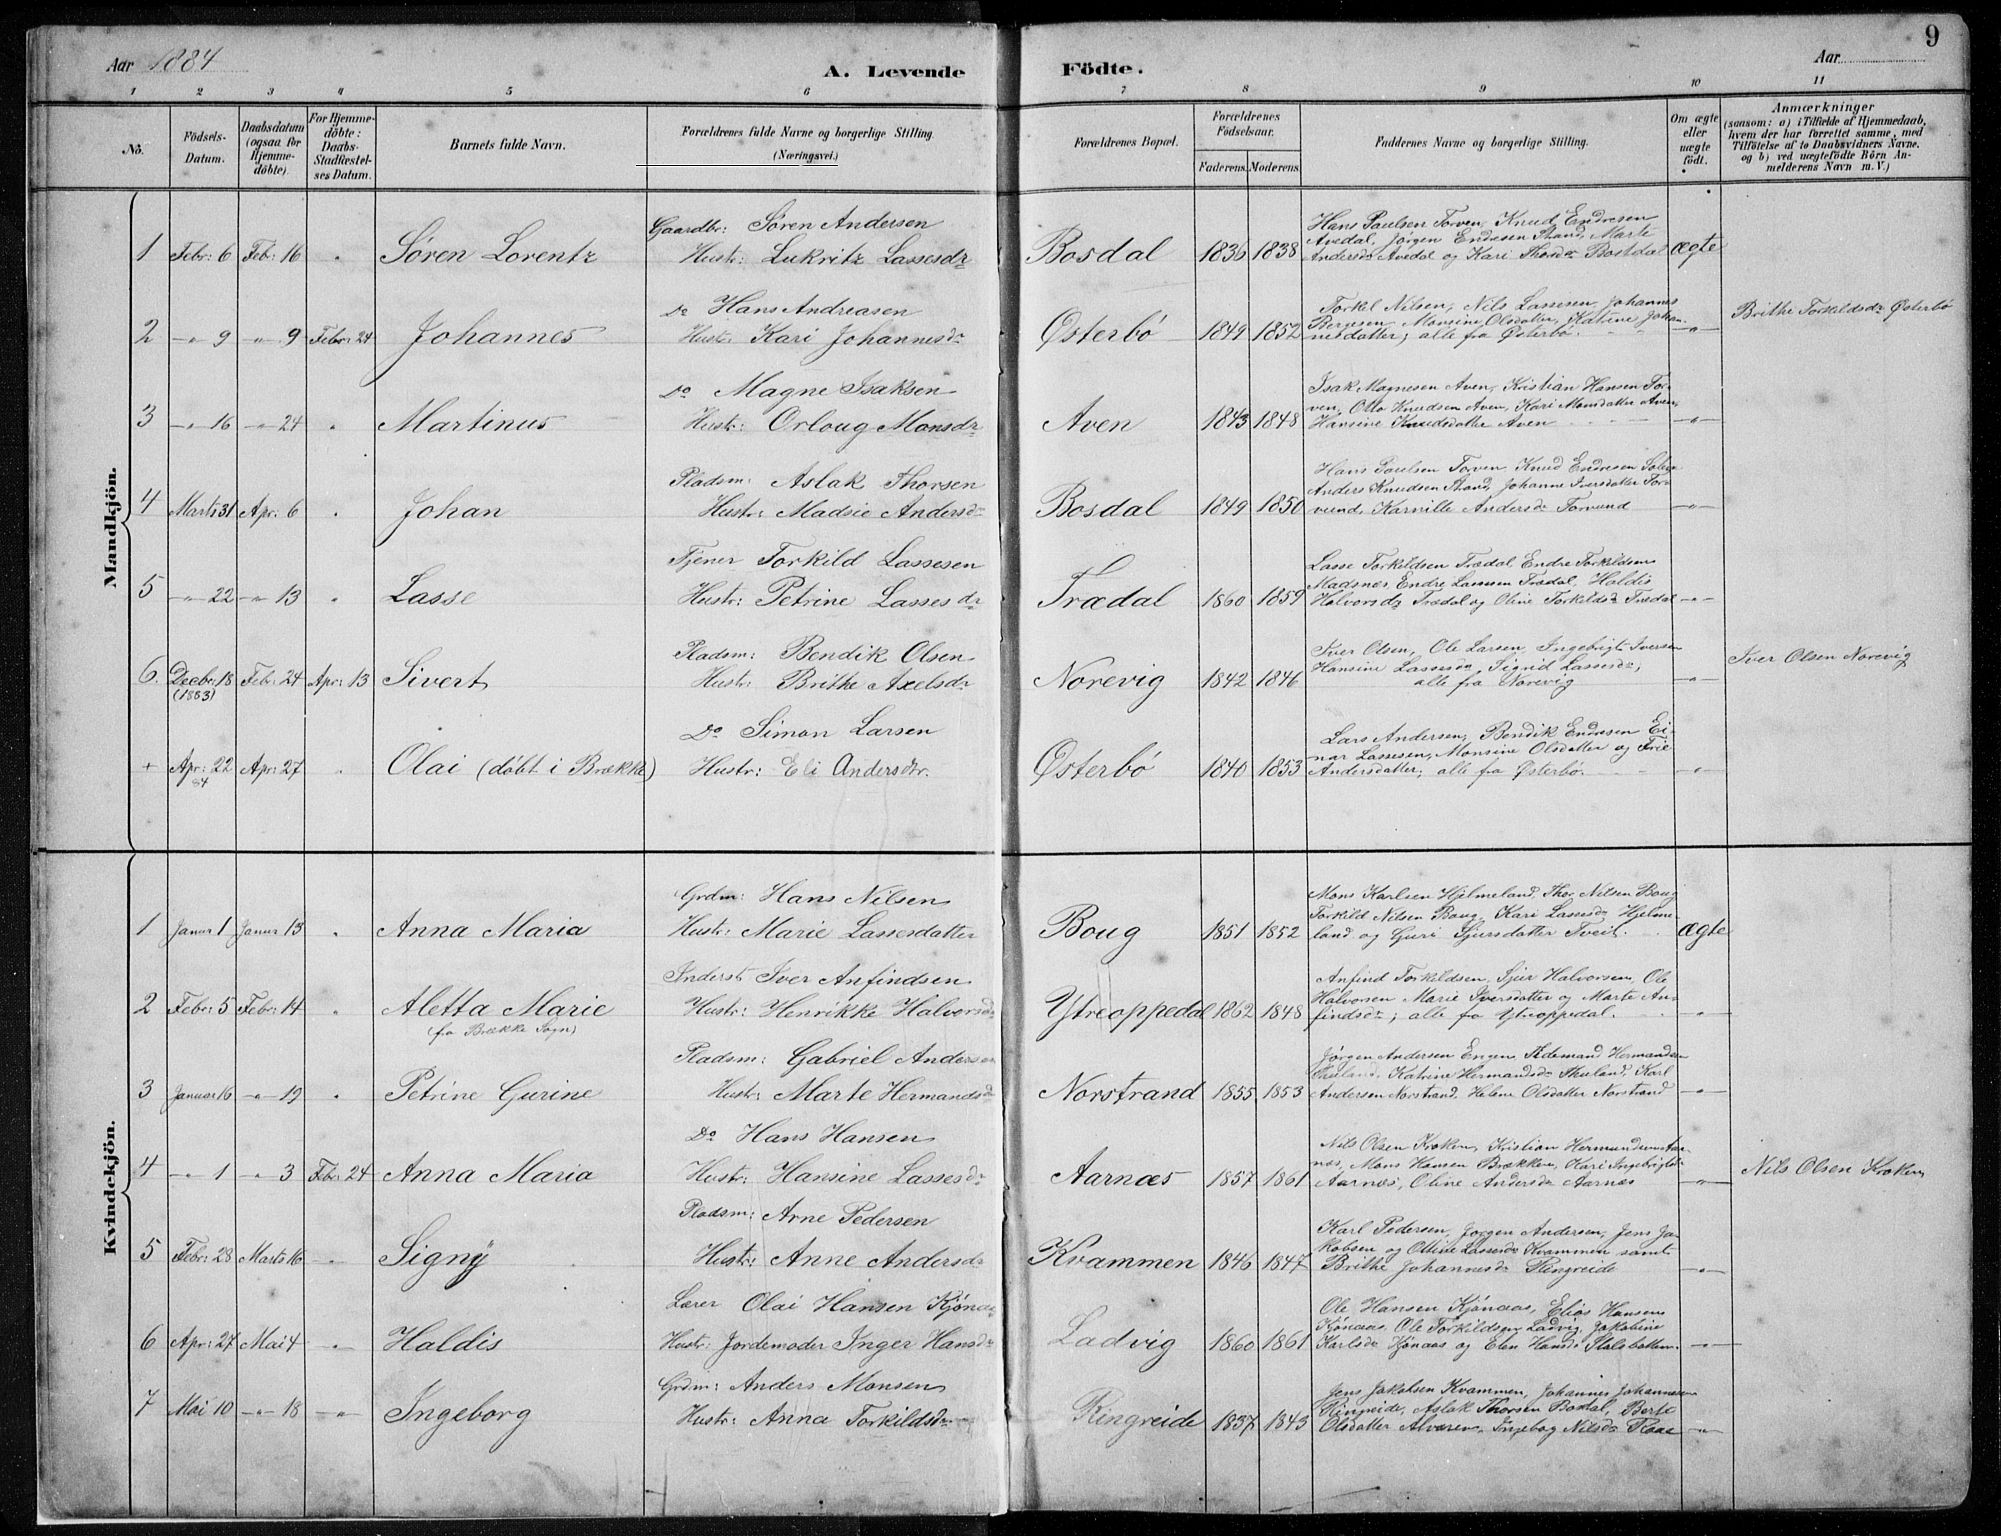 Aar 1884
A. Levende
Födte.
Aar
9
1 2 3 4 5 6 7 8 9 10 11
No.
Födsels-Datum.
Daabsdatum (ogsaa for Hjemme-döbte).
For Hjemme-döbte: Daabs-Stadfæstel-ses Datum.
Barnets fulde Navn.
Forældrenes fulde Navne og borgerlige Stilling.
(Næringsvei.)
Forældrenes Bopæl.
Forældrenes Födselsaar.
Faderens. Moderens.
Faddernes Navne og borgerlige Stilling.
Om ægte eller uægte födt.
Anmærkninger
(saasom: a) i Tilfælde af Hjemmedaab,
hvem der har forrettet samme, med
Tilföielse af to Daabsvidners Navne.
og b) ved uægtefödte Börn An-
melderens Navn m. V.)
Mandkjön.
Gaardbr: Søren Andersen
1 Febr: 6 Feb: 16 " Søren Lorentz Hustr: Lukritz Lassesdr Bosdal 1836 1838 ægte
Hans Poulsen Torven, Knud Endresen
Avedal, Jørgen Endresen Strand, Marte
Andersdr Avedal og Kari Thorsdr Bostdal
Do Hans Andreasen
2 -"- 9 -"- 9 Febr: 24 Johannes Hustr: Kari Johannesdr Østerbö 1849 1852 -"-
Torkel Nilsen, Nils Lassesen, Johannes
Bergesen, Monsine Olsdatter, Katrine Johan-
nesdatter; alle fra Østerbö.
Brithe Torkildsdr Østerbö
Do Magne Isaksen
3 -"- 16 -"- 24 " Martinus Hustr: Orloug Monsdr Aven 1843 1848 -"-
Isak Magnesen Aven, Kristian Hansen Tor-
ven, Otto Knudsen Aven, Kari Monsdatter Aven,
Hansine Knudsdatter Aven
Pladsm: Aslak Thorsen
4 Marts 31 Apr: 6 " Johan Hustr: Madsie Andersdr Bosdal 1849 1850 -"-
Hans Poulsen Torven, Knud Endresen
Anders Knudsen Strand, Johanne Iversdatter Tor-
vund, Karville Andersdr Torvund
Tjener Torkild Lassesen
5 -"- 22 -"- 13 " Lasse Hustr: Petrine Lassesdr Trædal 1860 1859 -"-
Lasse Torkildsen Trædal, Endre Torkildsen
Madsnes, Endre Lassesen Trædal, Haldis
Halvorsdr Trædal og Oline Torkildsdr Trædal
Pladsm: Bendik Olsen
6. Decbr: 18 (1883) Feb: 24 Apr: 13 Sivert Hustr: Brithe Axelsdr Norevig 1842 1846 -"-
Iver Olsen, Ole Larsen, Ingebrigt Iversen
Hansine Lassesdr, Sigrid Lassesdr;
alle fra Norevig
Iver Olsen Norevig
Do Simon Larsen
+ Apr: 22 84 Apr: 27 " Olai (döbt i Brække) Hustr: Eli Andersdr. Østerbö 1840 1853 -"-
Lars Andersen, Bendik Endresen Ei-
nar Lassesen, Monsine Olsdatter og
Andersdatter; alle fra Østerbö.
Kvindekjön.
Grdm: Hans Nilsen
1 Janur 1 Janur 13 " Anna Maria Hustr: Marie Lassesdatter Boug 1851 1852 ægte
Mons Karlsen Hjelmeland, Thor Nilsen Boug
Torkild Nilsen Boug, Kari Lassesdr Hjelme-
land og Guri Sjursdatter Tveit.
Inderst Iver Anfindsen
2 Febr: 5 Febr: 14 " Aletta Marie Hustr: Henrikke Halvorsd Ytreoppedal 1862 1848 -"-
(fra Brække Sogn)
Anfind Torkildsen, Sjur Halvorsen, Ole
Halvorsen Marie Iversdatter og Marte An-
findsdr; alle fra Ytreoppedal.
Pladsm: Gabriel Anders
3 Januar 16 -"- 19 " Petrine Gurine Hustr: Marte Hermandsd Norstrand 1855 1853 -"-
Jørgen Andersen Engen, Tidemand Hermandsen
Katrine Hermandsdr Karl
Andersen Norstrand, Helene Olsdatter Norstrand
Do Hans Hansen
4 -"- 1 -"- 3 Febr: 24 Anna Maria Hustr: Hansine Lassesdr Aarnæs 1857 1861 -"-
Nils Olsen Kroken, Kristian
Mons Hansen Brækken, Kari
Aarnæs, Oline Andersdr Aarnæs
Nils Olsen Kroken
Pladsm: Arne Pedersen
5 Febr: 28 Marts 16 -"- Signÿ Hustr: Anne Andersdr Kvammen 1846 1847 -"-
Karl Pedersen, Jorgen Andersen, Jens Ja-
kobsen og Oline Lassesdr Kvammen samt
Brithe Johannesdr Ringreide
Lærer Olai Hansen Kjönaas
6 Apr: 27 Mai 4 -"- Haldis Hustr: Jordemoder Inger Hansdr Ladvig 1860 1861 -"-
Ole Hansen Kjönaas, Elias Hansen
Kjönaas, Ole Torkildsen Ladvig, Jakobine
Karlsdr Kjönaas og Elen Hansdr
Grdm: Anders Monsen
7 Mai 10 -"- 18 -"- Ingeborg Hustr: Anna Torkildsdr Ringreide 1837 1843 -"-
Jens Jakobsen Kvammen, Johannes Johannesen
Ringreide, Aslak Thorsen Bosdal, Berte
Olsdatter Alværen, Ingebog Nilsdr